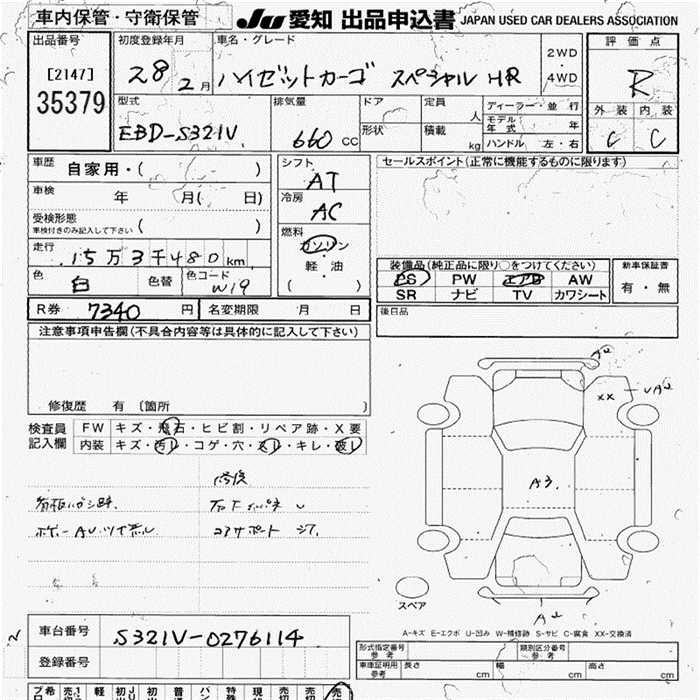 車内保管・守衛保管
JU 愛知 出品申込書 JAPAN USED CAR DEALERS ASSOCIATION
出品番号
[2147]
35379
初度登録年月
28 2月
車名・グレード
ハイゼットカーゴ スペシャル HR
2WD
・
4WD
評価点
R
外装 内装
C C
型式
EBD-S321V
排気量
660 CC
ドア
形状
定員 人
積載 kg
ディーラー・並行
モデル年式 年
ハンドル 左・右
車歴 自家用・( )
車検 年 月( 日)
受検形態
車検付きのみ記入して下さい ( )
走行
15万3千480km
色 白 色替 色コード W19
シフト
AT
冷房
AC
燃料
ガソリン
軽・油
( )
セールスポイント(正常に機能するものに限ります)
装備品(純正品に限り○をつけてください)
PS PW エアB AW
SR ナビ TV カワシート
新車保証書
有・無
R券 7340 円 名変期限 月 日
後日品
注意事項申告欄(不具合内容等は具体的に記入して下さい)
修復歴 有 〔箇所 〕
検査員記入欄
FW キズ・飛石・ヒビ割・リペア跡・X要
内装 キズ・汚れ・コゲ・穴・スレ・キレ・破レ
修復
コアサポート
A2
XX
UA2
A3
スペア
A-キズ E-エクボ U-凹み W-補修跡 S-サビ C-腐食 XX-交換済
車台番号 S321V-0276114
登録番号
形式指定番号
参考
類別区分番号
参考
車庫証明用
参考
長さ cm 幅 cm 高さ cm